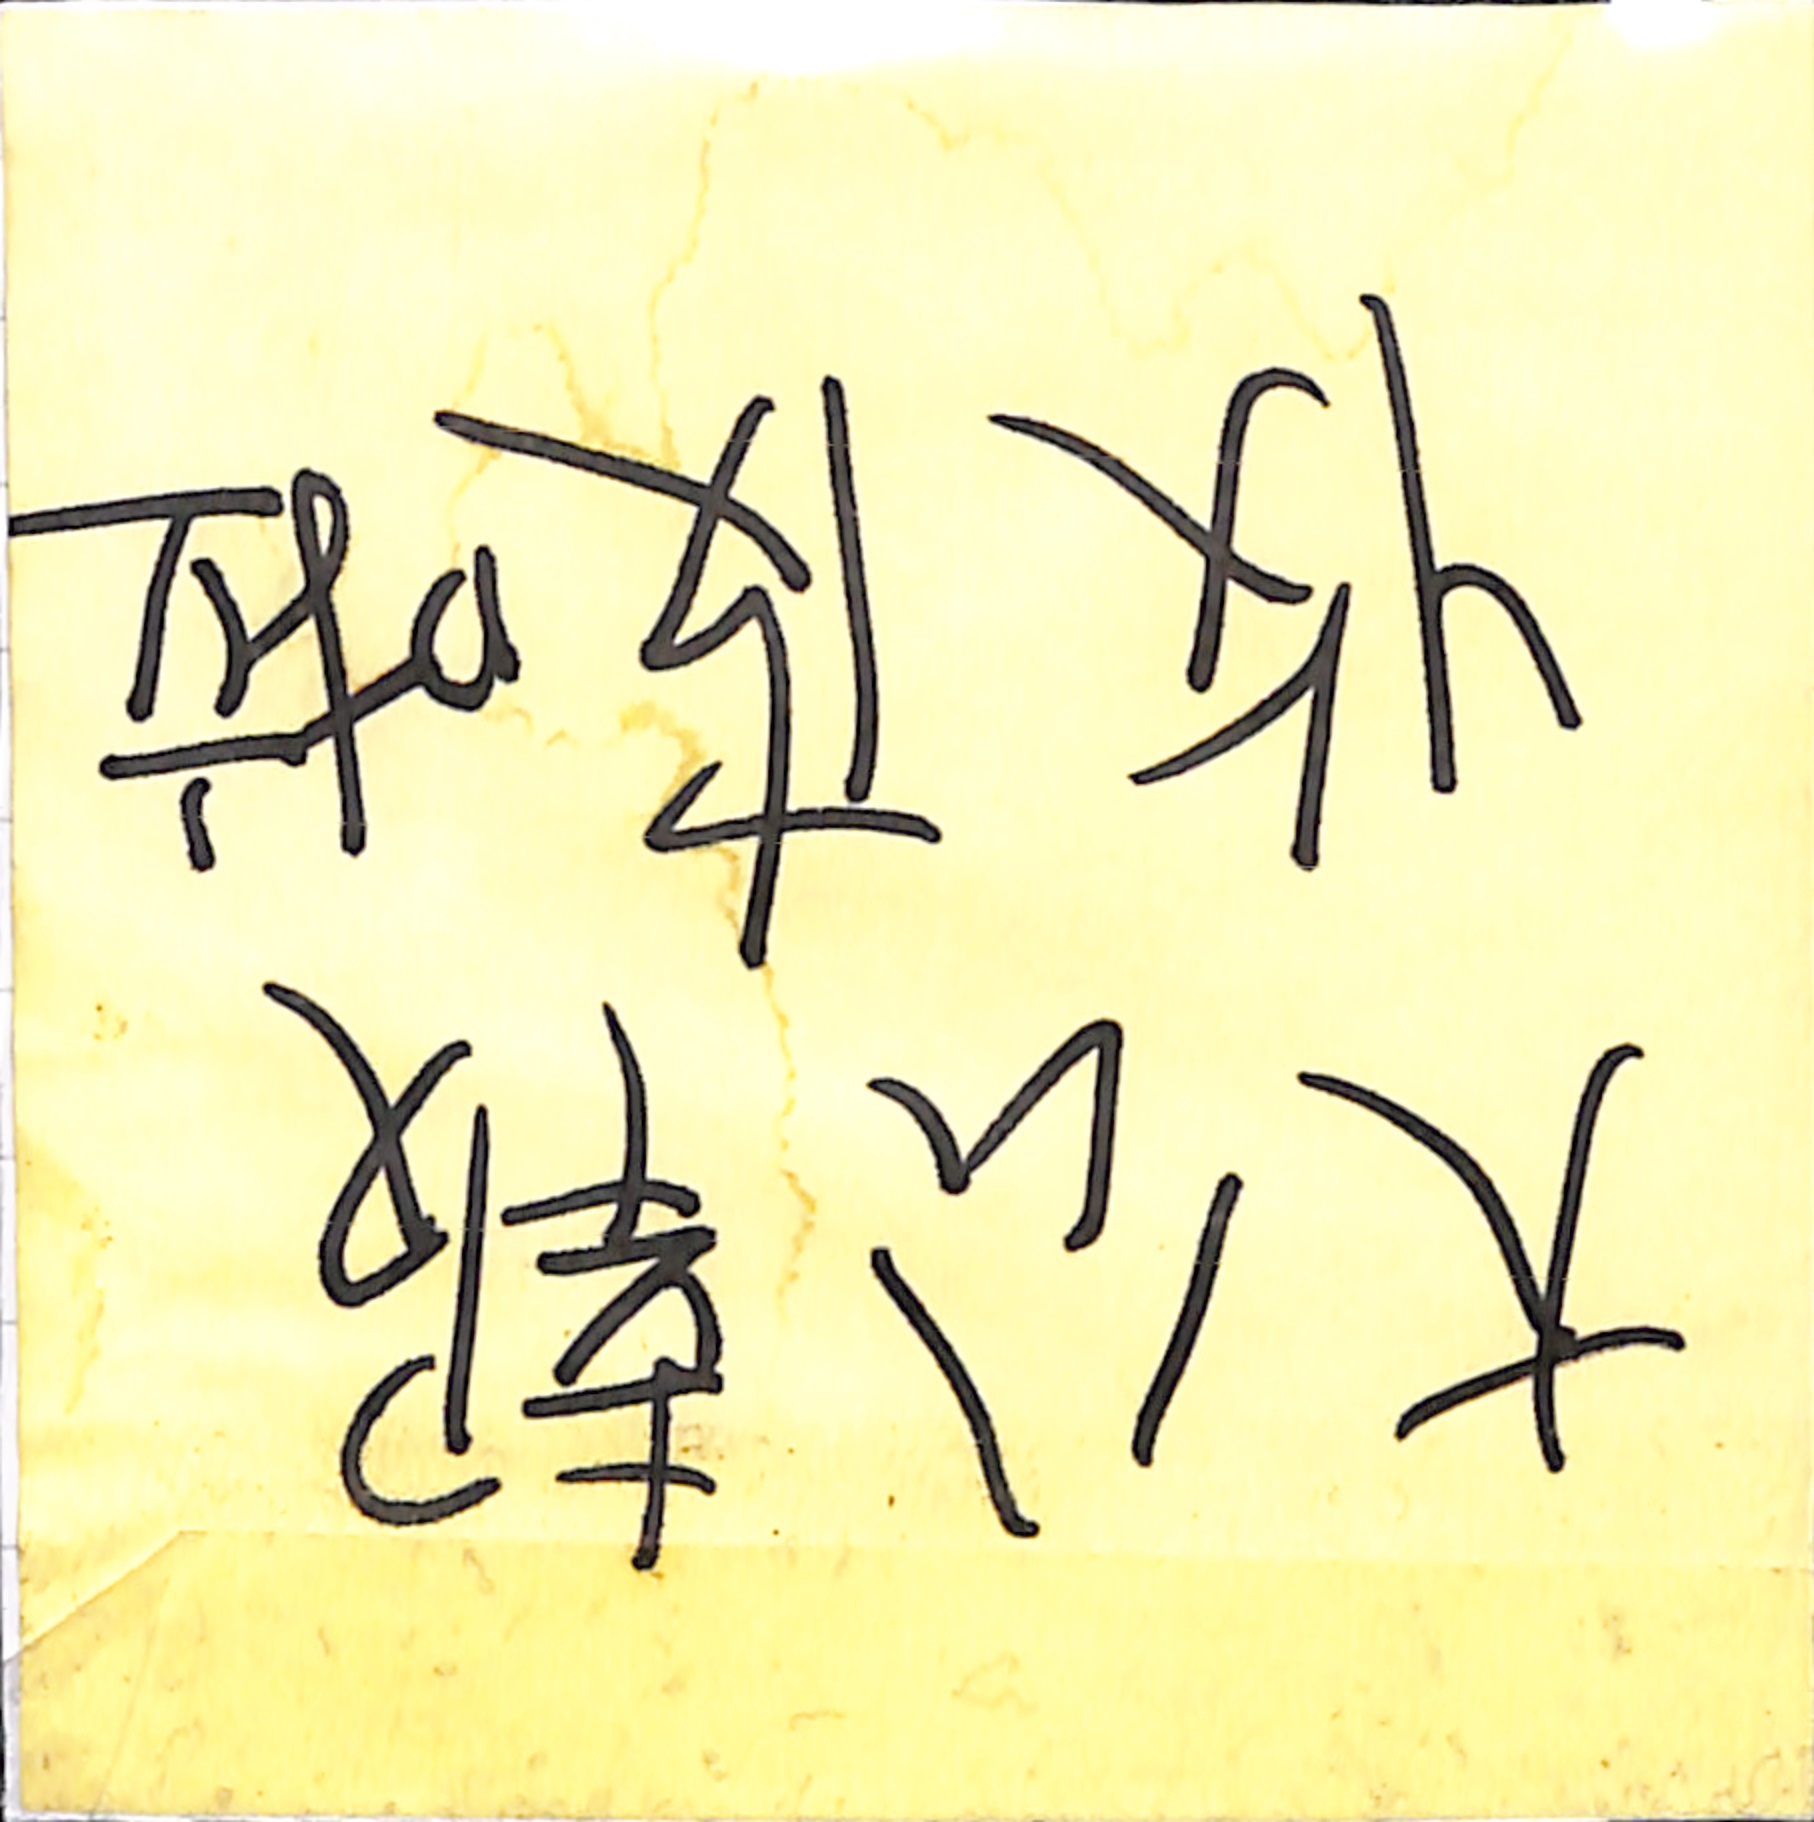 大公報
收皮啦